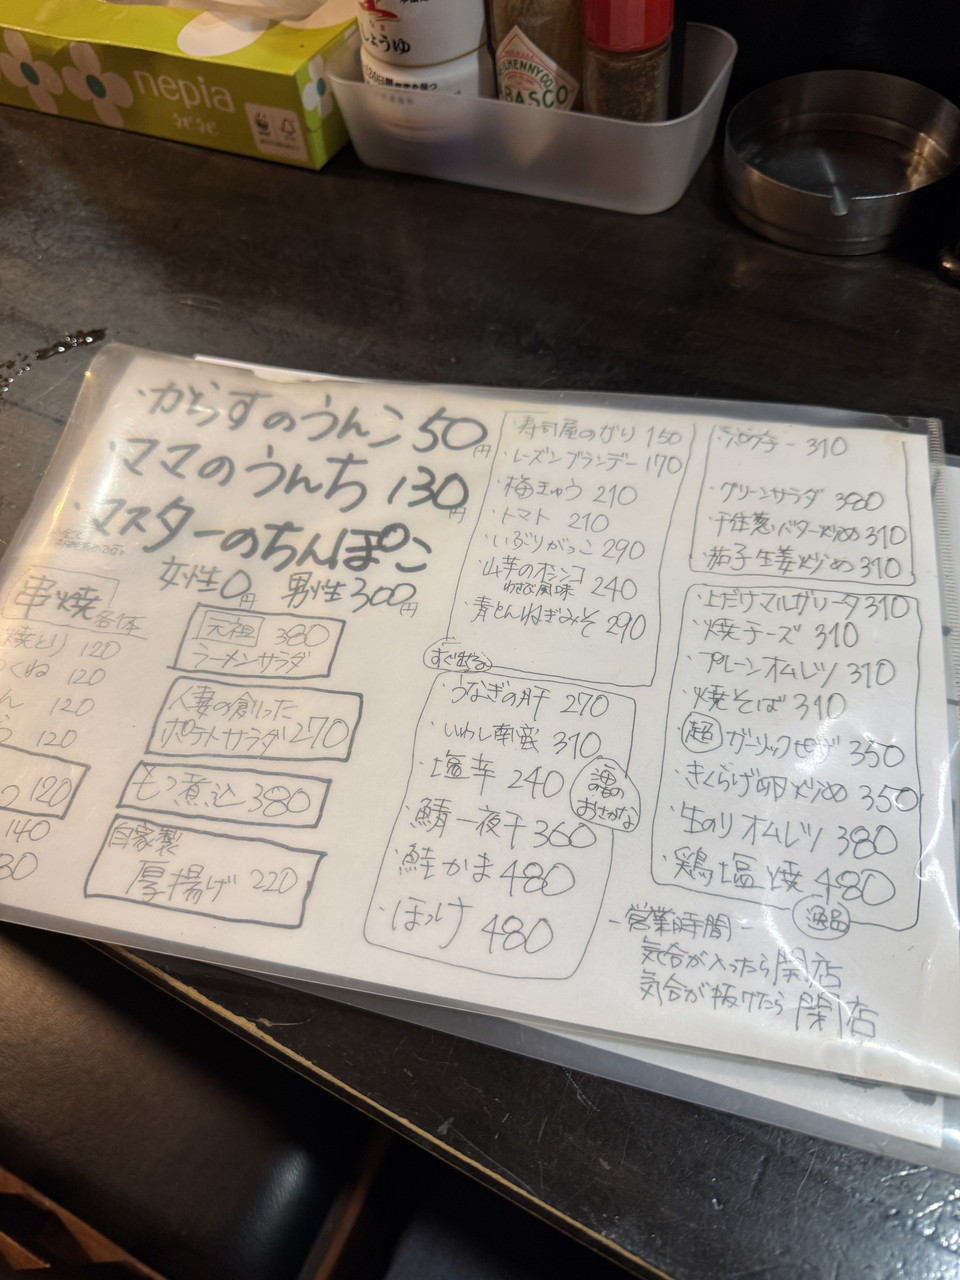 nepia
ネピネピ
しょうゆ
TABASCO
・からすのうんこ 50円
・ママのうんち 130円
・マスターのちんぽこ
女性0円 男性300円
串焼 各1本
焼とり 120
つくね 120
120
120
120
140
元祖 380
ラーメンサラダ
人妻の創った
ポテトサラダ 270
もつ煮込 380
自家製
厚揚げ 220
・寿司屋のがり 150
・レーズンブランデー 170
・梅きゅう 210
・トマト 210
・いぶりがっこ 290
・山芋のオシンコ
わさび風味 240
・青とんねぎみそ 290
すぐ出る
・うなぎの肝 270
・いわし南蛮 310
・塩辛 240
・鯖一夜干 360
・鮭かま 480
・ほっけ 480
噂の
おさかな
310
・グリーンサラダ 380
・茄子生姜炒め 310
・上だけマルガリータ 310
・焼チーズ 310
・プレーンオムレツ 310
・焼そば 310
超 ガーリックピザ 350
・きくらげ卵炒め 350
・生のりオムレツ 380
・鶏塩焼 480
逸品
-営業時間-
気合が入ったら開店
気合が抜けたら閉店